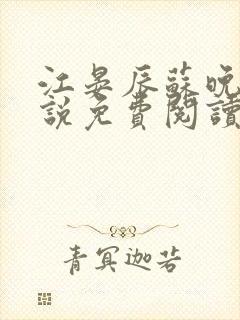 江晏辰蘇晚
說免費閱讀
青冥迦若